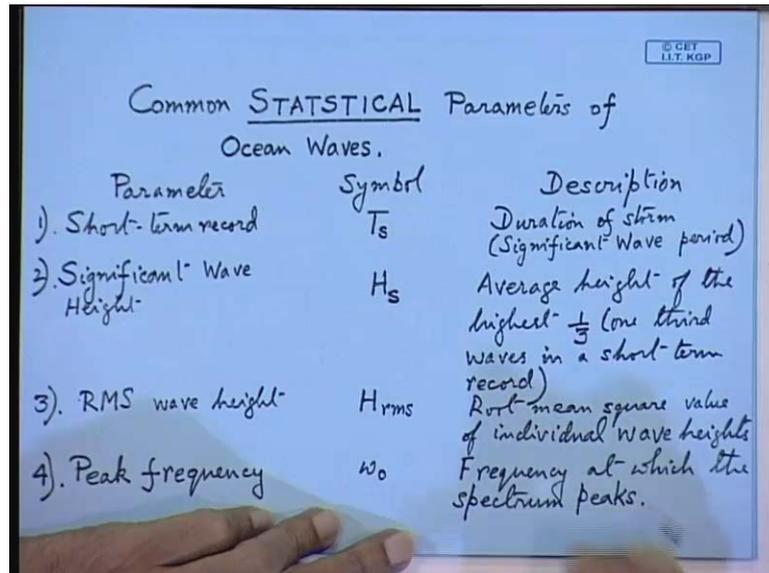 © CET
I.I.T. KGP
Common STATSTICAL Parameters of
Ocean Waves.
Parameter Symbol Description
1). Short-term record Ts Duration of storm
(Significant Wave period)
2). Significant Wave Height Hs Average height of the
highest 1/3 (one third
waves in a short-term
record)
3). RMS wave height Hrms Root mean square value
of individual wave heights
4). Peak frequency ω₀ Frequency at which the
spectrum peaks.